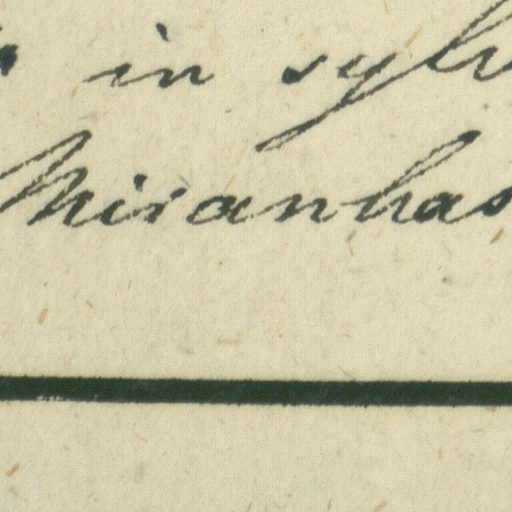 in sylv
Miranhas